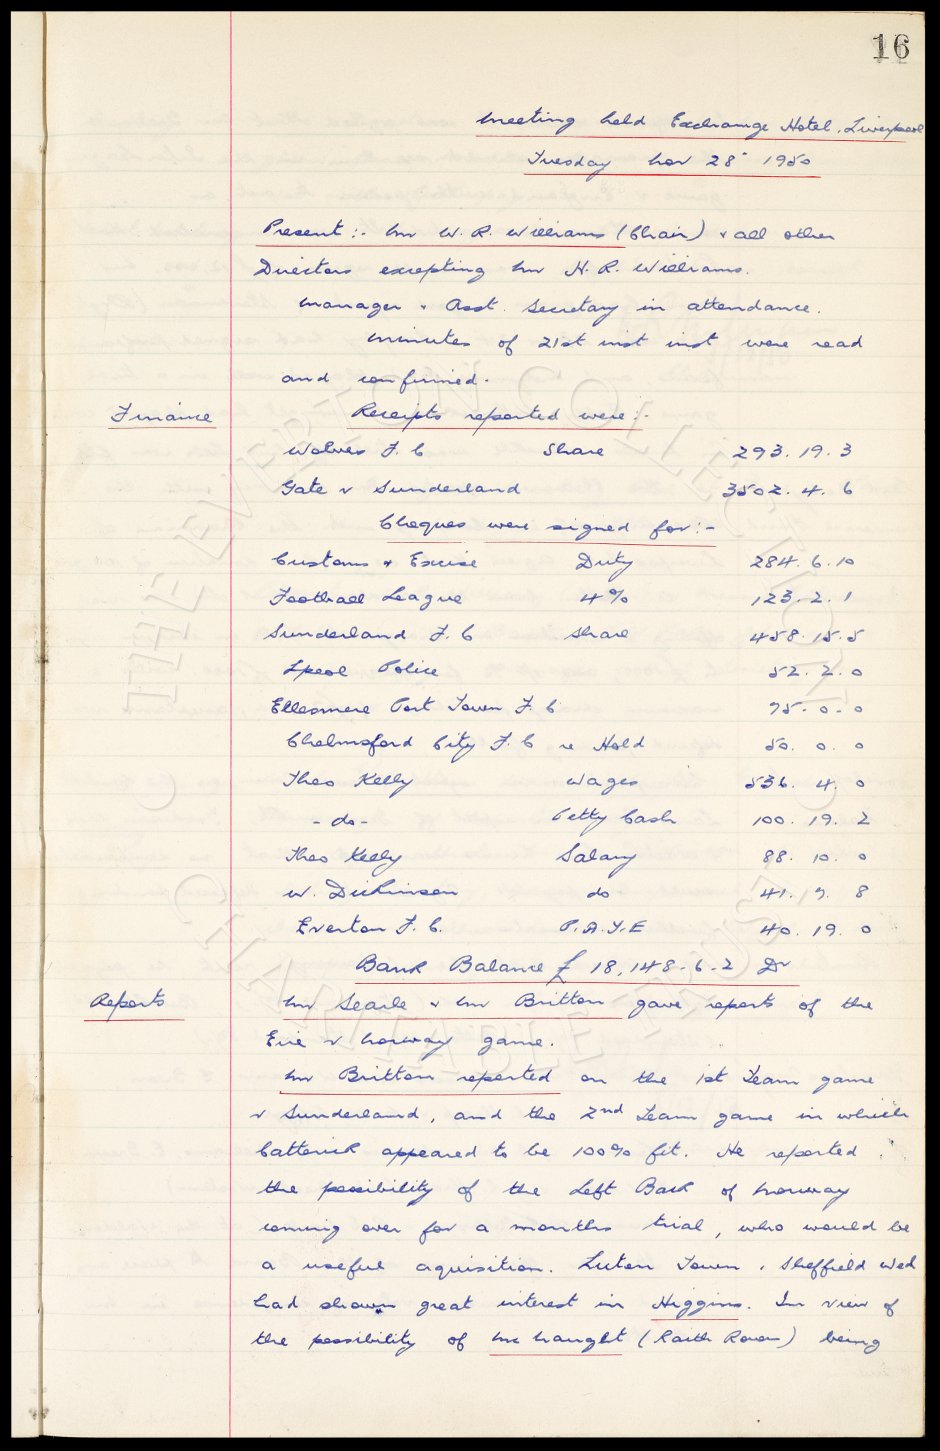 16
Meeting held Exchange Hotel, Liverpool
Tuesday Nov 28" 1950
Present :- Mr W. R. Williams (Chair) & all other
Directors excepting Mr H. R. Williams.
Manager & Asst. Secretary in attendance.
Minutes of 21st inst inst were read
and confirmed.
Finance Receipts reported were :-
Wolves F. C Share 293. 19. 3
Gate v Sunderland 3502. 4. 6
Cheques were signed for :-
Customs & Excise Duty 284. 6. 10
Football League 4% 123. 2. 1
Sunderland F. C Share 458. 15. 5
Lpool Police 52. 2. 0
Ellesmere Port Town F. C 75. 0. 0
Chelmsford City F. C re Hold 50. 0. 0
Theo Kelly Wages 536. 4. 0
- do - Petty Cash 100. 19. 2
Theo Kelly Salary 88. 10. 0
W. Dickinson do 41. 7. 8
Everton F. C. P.A.Y.E 40. 19. 0
Bank Balance £ 18,148-6-2 Dr
Reports Mr Searle & Mr Britton gave reports of the
Eire v Norway game.
Mr Britton reported on the 1st Team game
v Sunderland, and the 2nd Team game in which
Catterick appeared to be 100% fit. He reported
the possibility of the Left Back of Norway
coming over for a months trial, who would be
a useful aquisition. Luton Town & Sheffield Wed
had shown great interest in Higgins. In view of
the possibility of McNaught (Raith Rovers) being
THE EVERTON COLLECTION
CHARITABLE TRUST